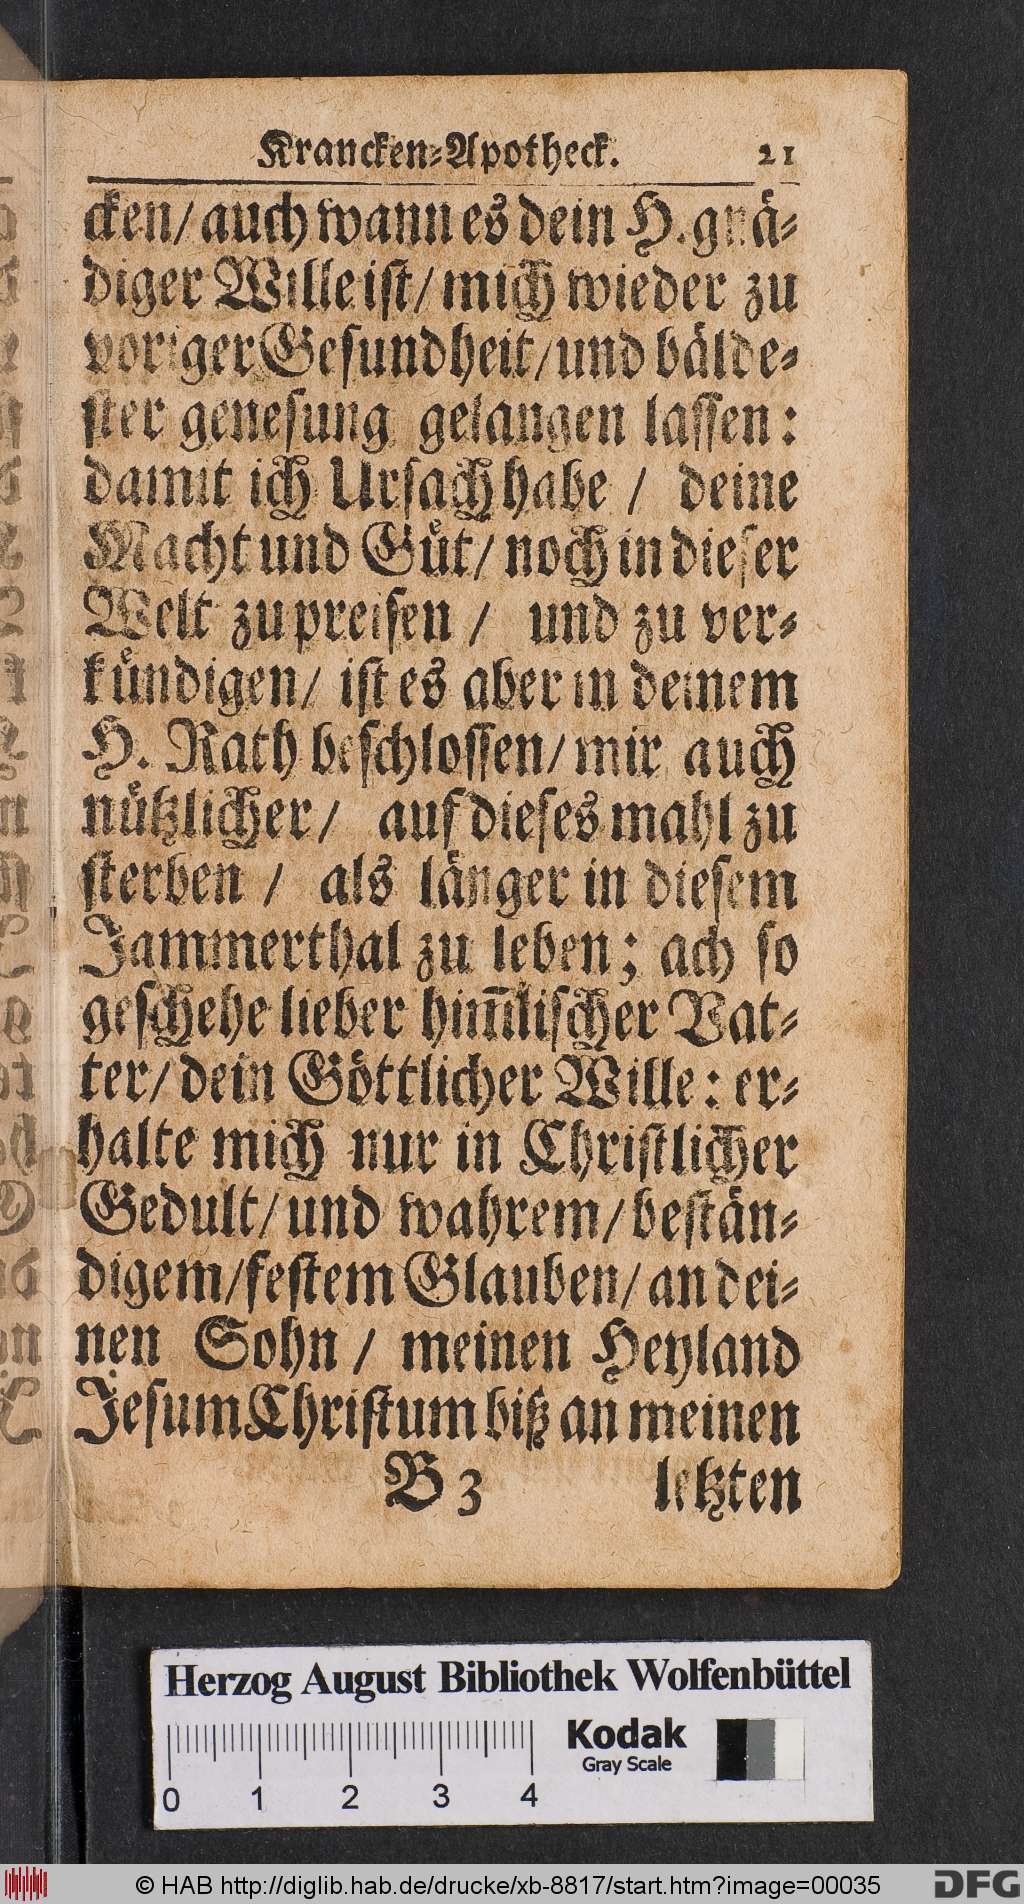 Krancken-Apotheck. 21
cken/ auch wann es dein H. gnä-
diger Wille ist/ mich wieder zu
voriger Gesundheit/ und bälde-
ster genesung gelangen lassen:
damit ich Ursach habe / deine
Macht und Güt/ noch in dieser
Welt zu preisen / und zu ver-
kündigen/ ist es aber in deinem
H. Rath beschlossen/ mir auch
nützlicher/ auf dieses mahl zu
sterben / als länger in diesem
Jammerthal zu leben; ach so
geschehe lieber him̃lischer Vat-
ter/ dein Göttlicher Wille: er-
halte mich nur in Christlicher
Gedult/ und wahrem/ bestän-
digem/ festem Glauben/ an dei-
nen Sohn / meinen Heyland
Jesum Christum biß an meinen
B 3 letzten
Herzog August Bibliothek Wolfenbüttel
Kodak
Gray Scale
0 1 2 3 4
© HAB http://diglib.hab.de/drucke/xb-8817/start.htm?image=00035
DFG